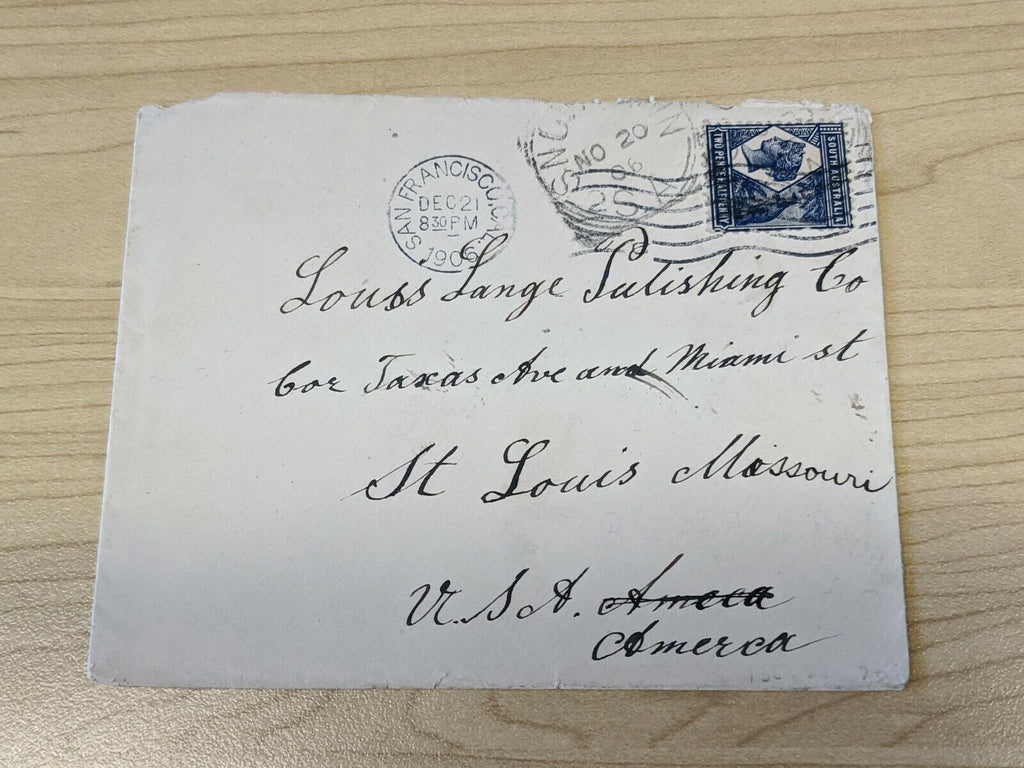 SAN FRANCISCO, CAL.
DEC 21
8 30 PM
1906
NO 20
06
S.A
SOUTH AUSTRALIA
TWO PENCE HALFPENNY
Louis Lange Pulishing Co
Cor Taxas Ave and Miami st
St Louis Missouri
U.S.A. Ameca
Amerca